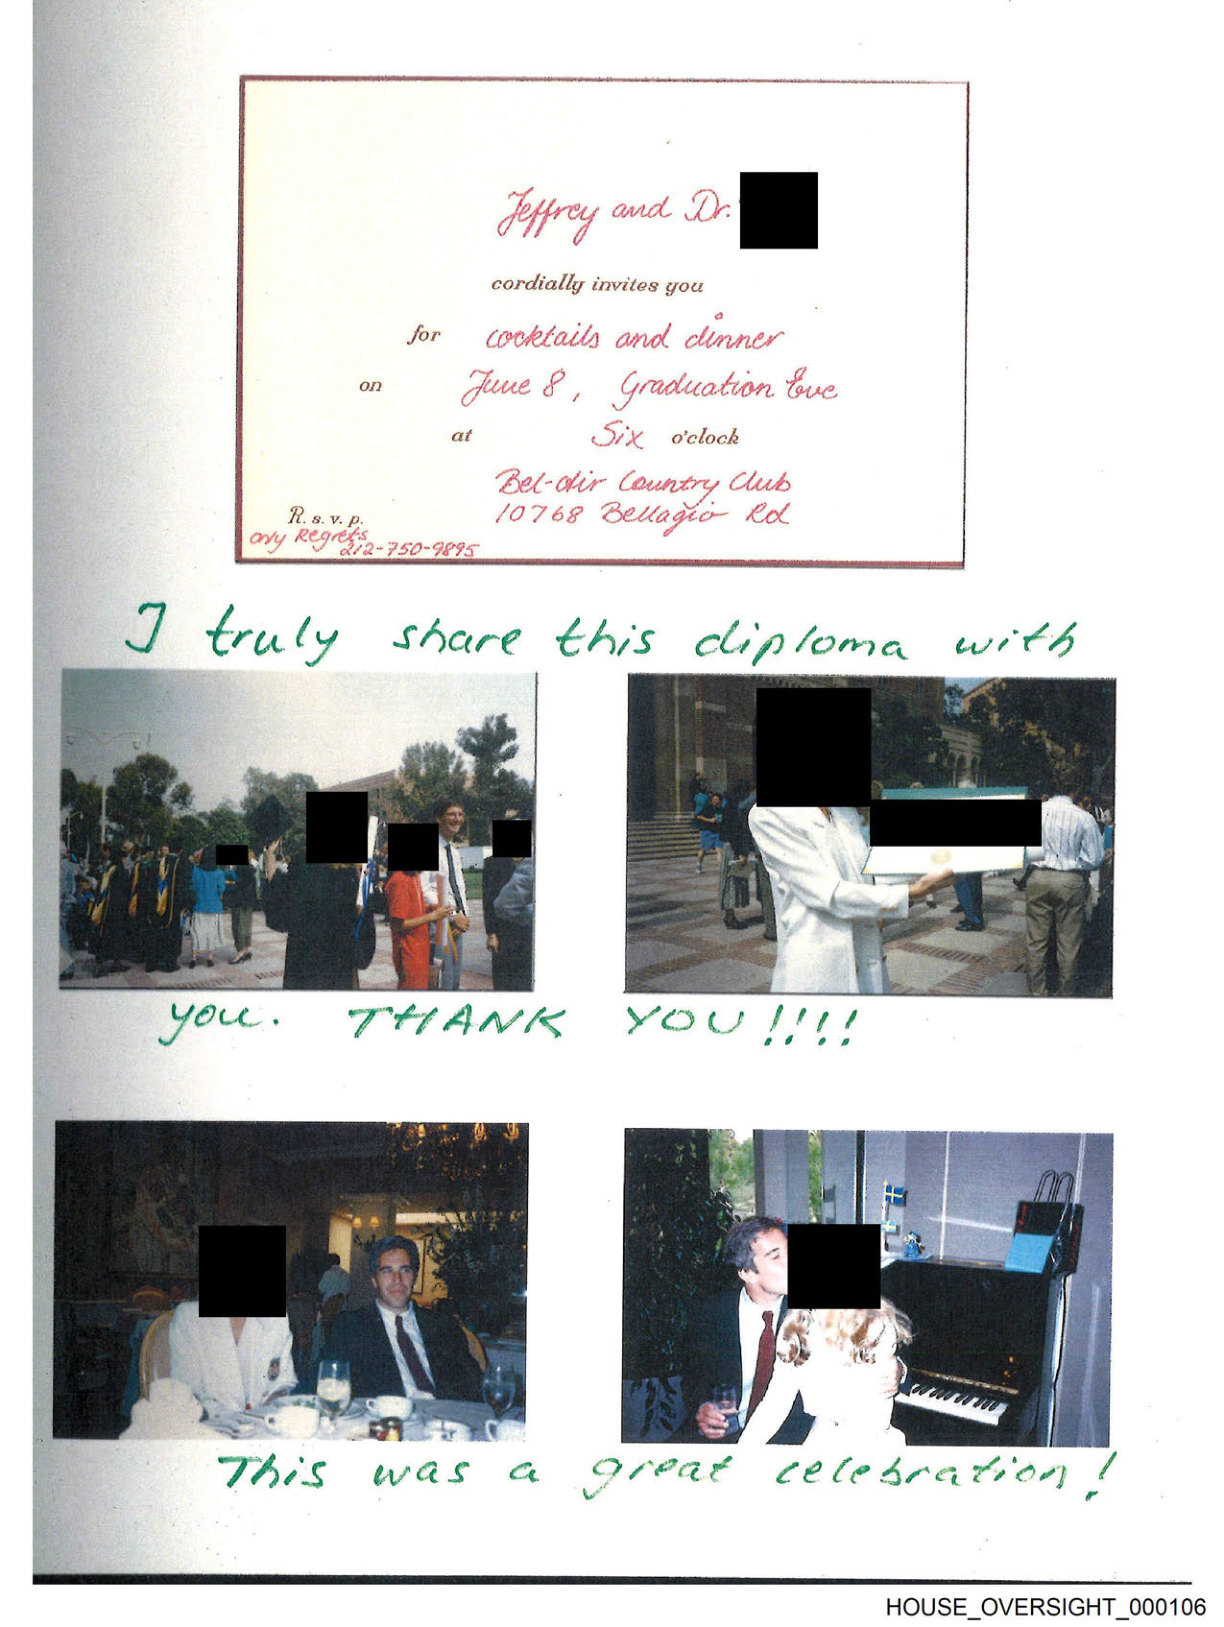 Jeffrey and Dr.
cordially invites you
for cocktails and dinner
on June 8, Graduation Eve
at Six o'clock
Bel-Air Country Club
10768 Bellagio Rd
R. s. v. p.
only Regrets
212-750-9895
I truly share this diploma with
you. THANK YOU!!!!
This was a great celebration!
HOUSE_OVERSIGHT_000106